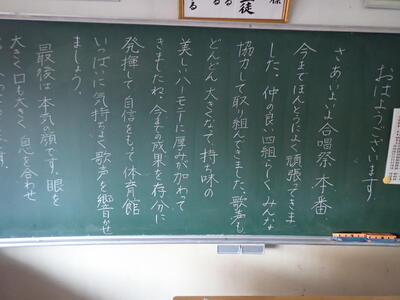 徒
る
おはようございます。
さあいよいよ合唱祭本番、
今までほんとうによく頑張ってきま
した。仲の良い四組らしく みんな
協力して取り組んできました。歌声も
どんどん大きくなって 持ち味の
美しいハーモニーに厚みが加わって
きましたね。今までの成果を存分に
発揮して 自信をもって 体育館
いっぱいに気持ちよく歌声を響かせ
ましょう。
最後は本気の顔です。眼を
大きく口も大きく 息を合わせ